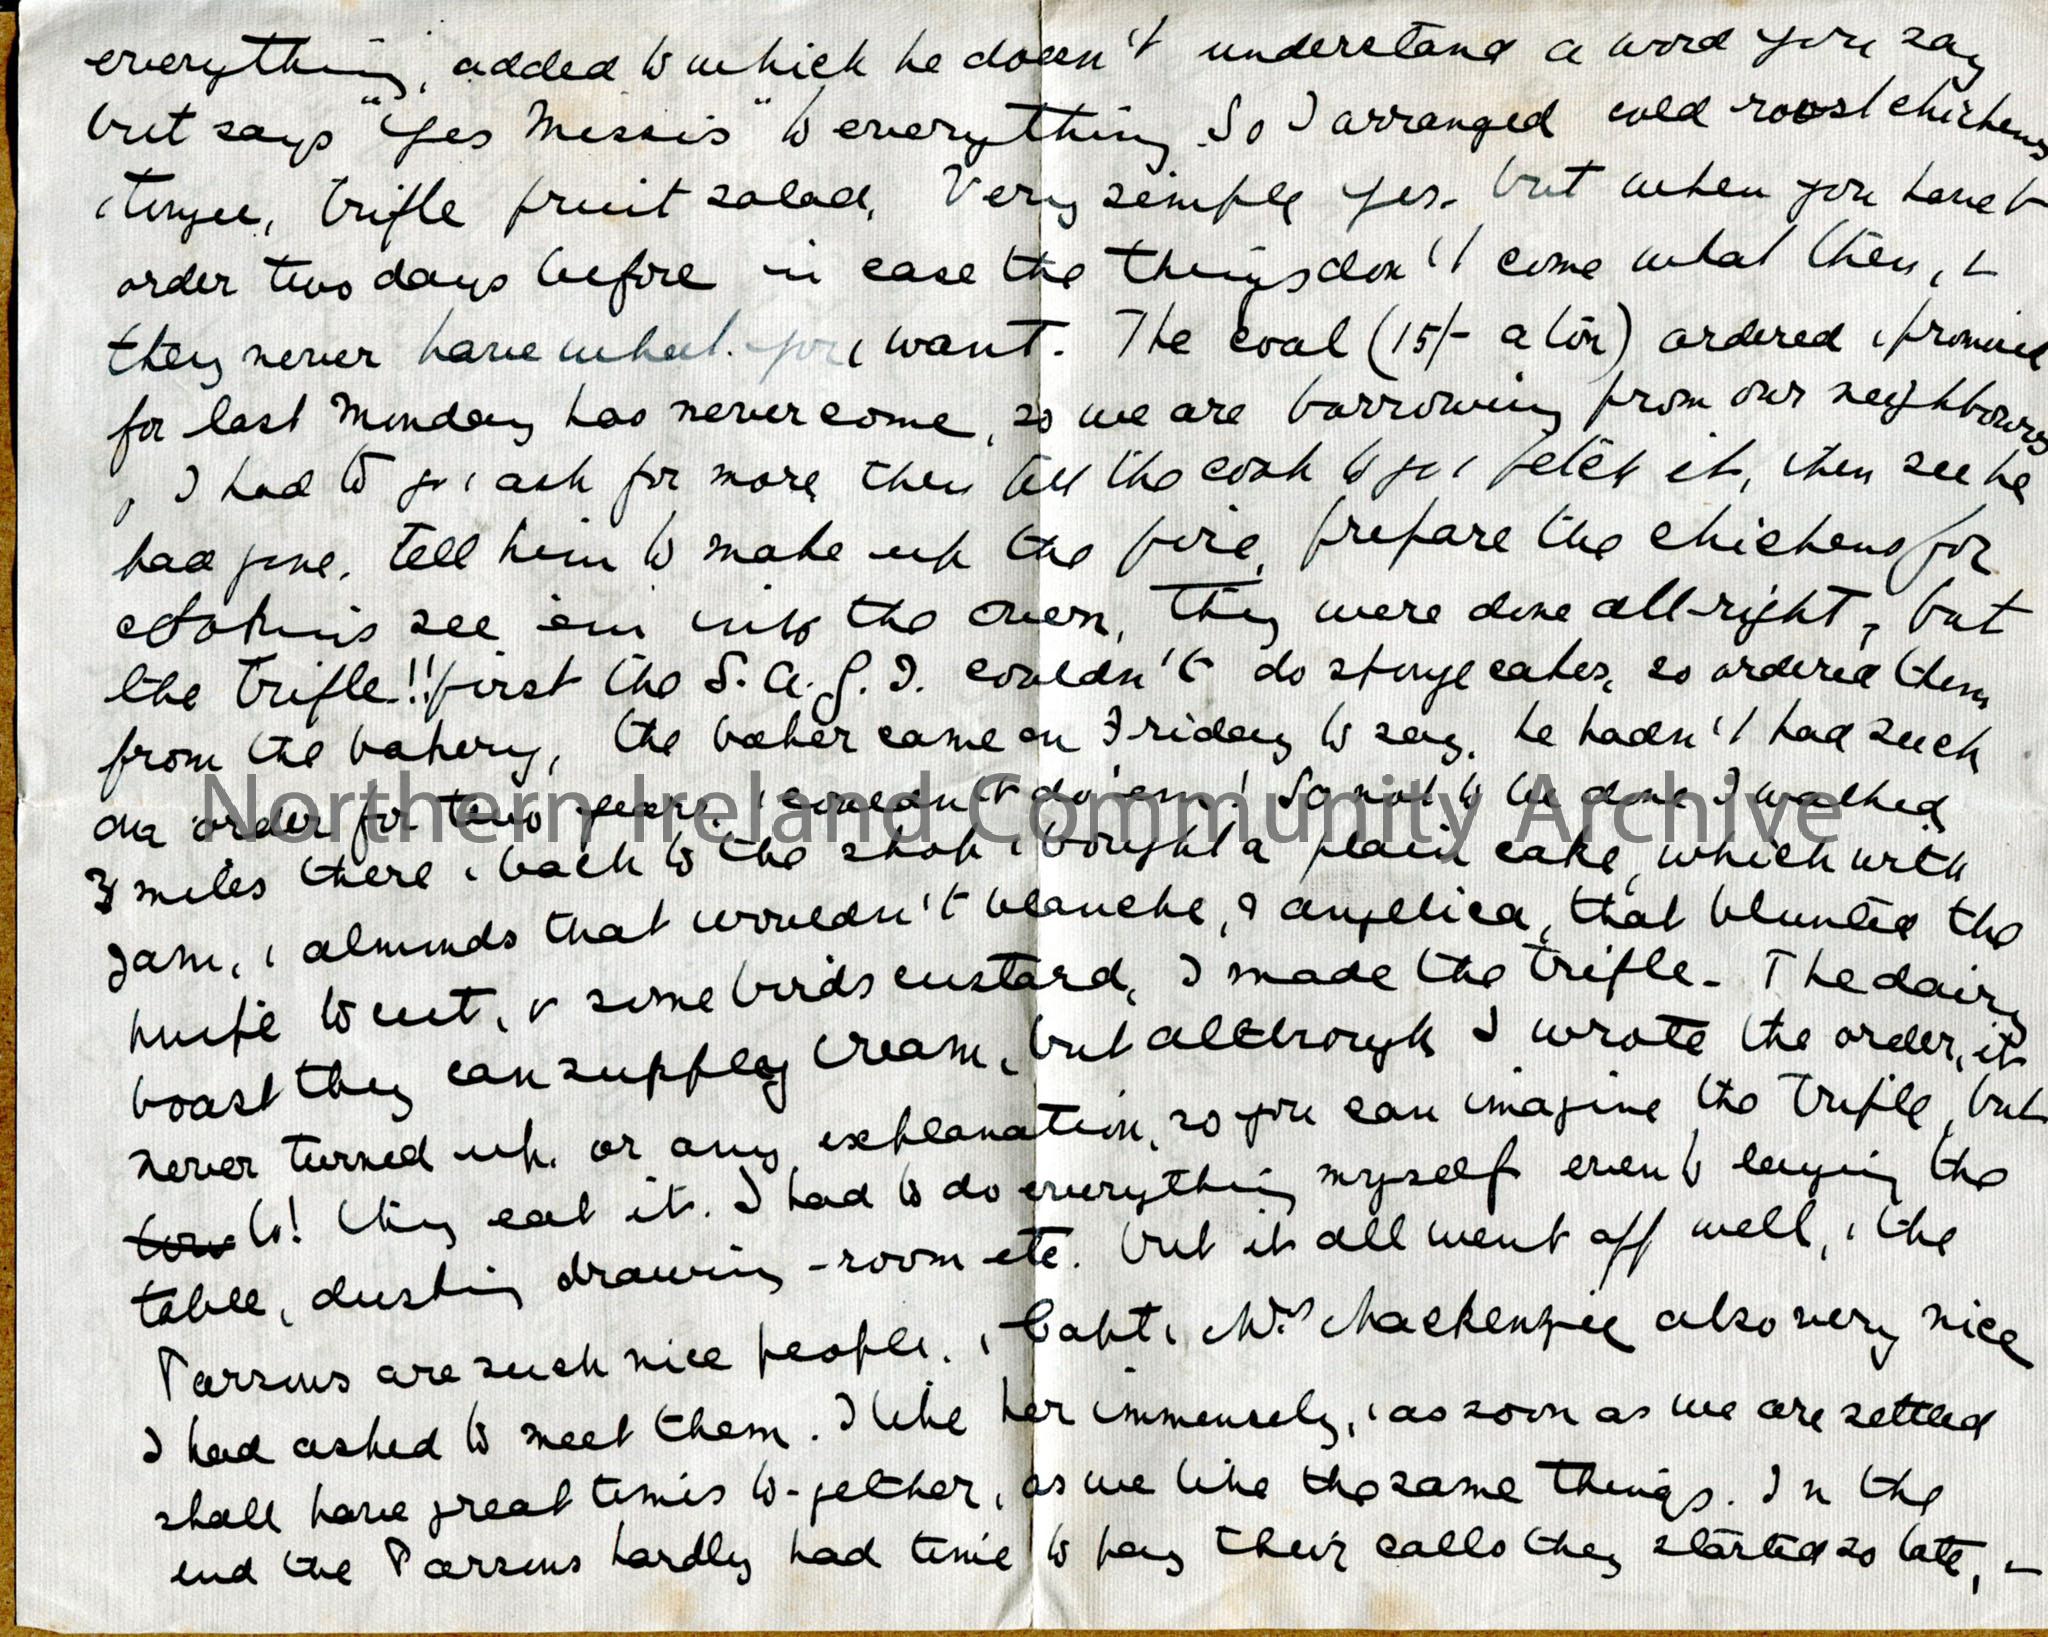 everything, added to which he doesn't understand a word you say
but says "Yes Missis" to everything. So I arranged cold roast chickens
& tongue, trifle fruit salad. Very simple yes. but when you have to
order two days before in case the things don't come what then, &
they never have what you want. The coal (15/- a ton) ordered & promised
for last Monday has never come, so we are borrowing from our neighbours
, I had to go & ask for more then tell the cook to go & fetch it, then see he
had gone, tell him to make up the fire, prepare the chickens for
see 'em into the oven, They were done all-right, but
the trifle!! first the S.A.G.I. couldn't do sponge cakes, so ordered them
from the bakery, the baker came on Friday to say, he hadn't had such
an order for two years & couldn't do 'em! So not to be done I walked
3 miles there & back to the shop & bought a plain cake, which with
jam, & almonds that wouldn't blanche, & angelica, that blunted the
knife to cut, & some birds custard, I made the trifle. The dairy
boast they can supply cream, but although I wrote the order, it
never turned up, or any explanation, so you can imagine the trifle, but
to! they eat it. I had to do everything myself even to laying the
table, dusting drawing-room etc. but it all went off well, & the
Parsons are such nice people. & Capt & Mrs Mackenzie also very nice
I had asked to meet them. I like her immensely, & as soon as we are settled
shall have great times to-gether, as we like the same things. In the
end the Parsons hardly had time to pay their calls they started so late, &
Northern Ireland Community Archive